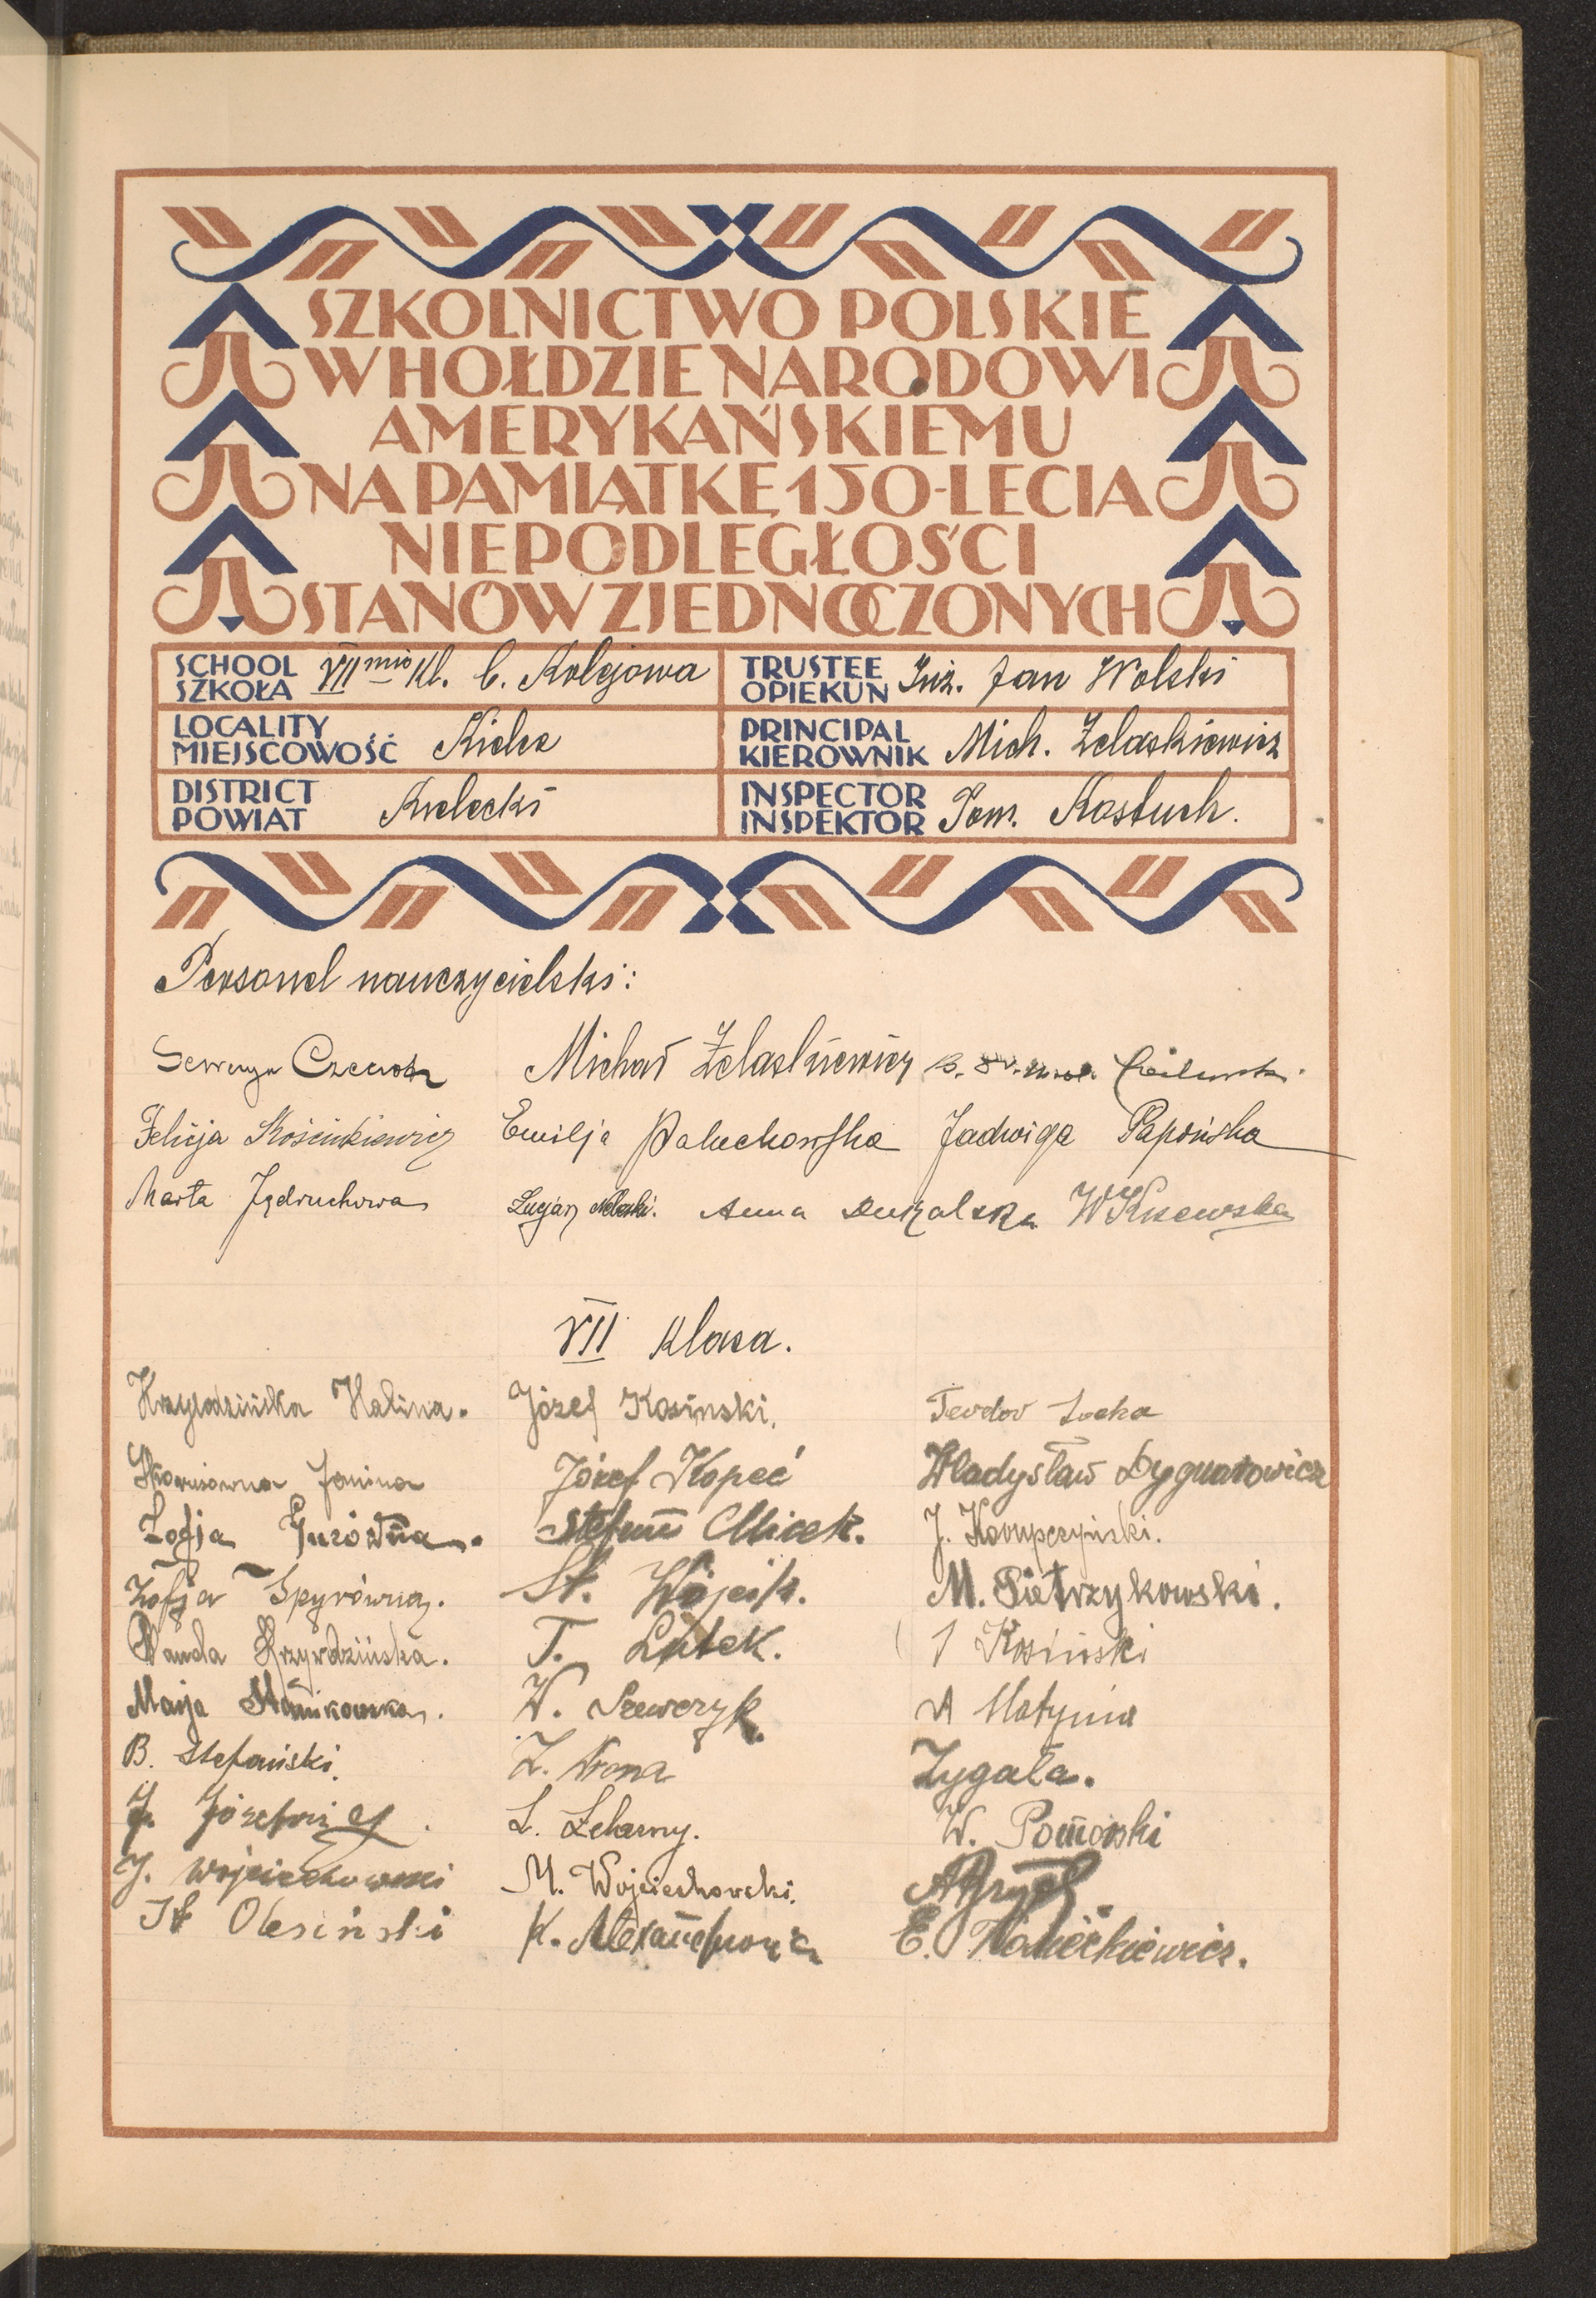 SZKOLNICTWO POLSKIE
W HOŁDZIE NARODOWI
AMERYKAŃSKIEMU
NA PAMIĄTKĘ 150-LECIA
NIEPODLEGŁOŚCI
STANÓW ZJEDNOCZONYCH
SCHOOL SZKOŁA VII mio Kl. C. Kolejowa
TRUSTEE OPIEKUN Inż. Jan Wolski
LOCALITY MIEJSCOWOŚĆ Kielce
PRINCIPAL KIEROWNIK Mich. Żelaskiewicz
DISTRICT POWIAT Kielecki
INSPECTOR INSPEKTOR Tom. Kostuch.
Personel nauczycielski:
Seweryn Michał Żelaskiewicz
Felicja Kościukiewicz Emilja Paluchowska Jadwiga Papońska
Marta Jędruchowa Lucjan Anna W Kusewska
VII klasa.
Halina. Józef Kosinski. Teodor Socha
Janina Józef Kopeć Władysław Dygnarowicz
Zofja Stefan Micek. J. Korupczyński.
Zofja Spyrówna. St. Wójcik. M. Pietrzykowski.
Wanda Krzywdzińska. T. Lutek. Kosiński
Marja Stanikowska. W. Szewczyk. Matynia
B. Stefański. Z. Wrona Zygała.
J. L. Żelazny. W. Pomorski
J. Wojciechowski M. Wojciechowski.
St Olesiński K. E.